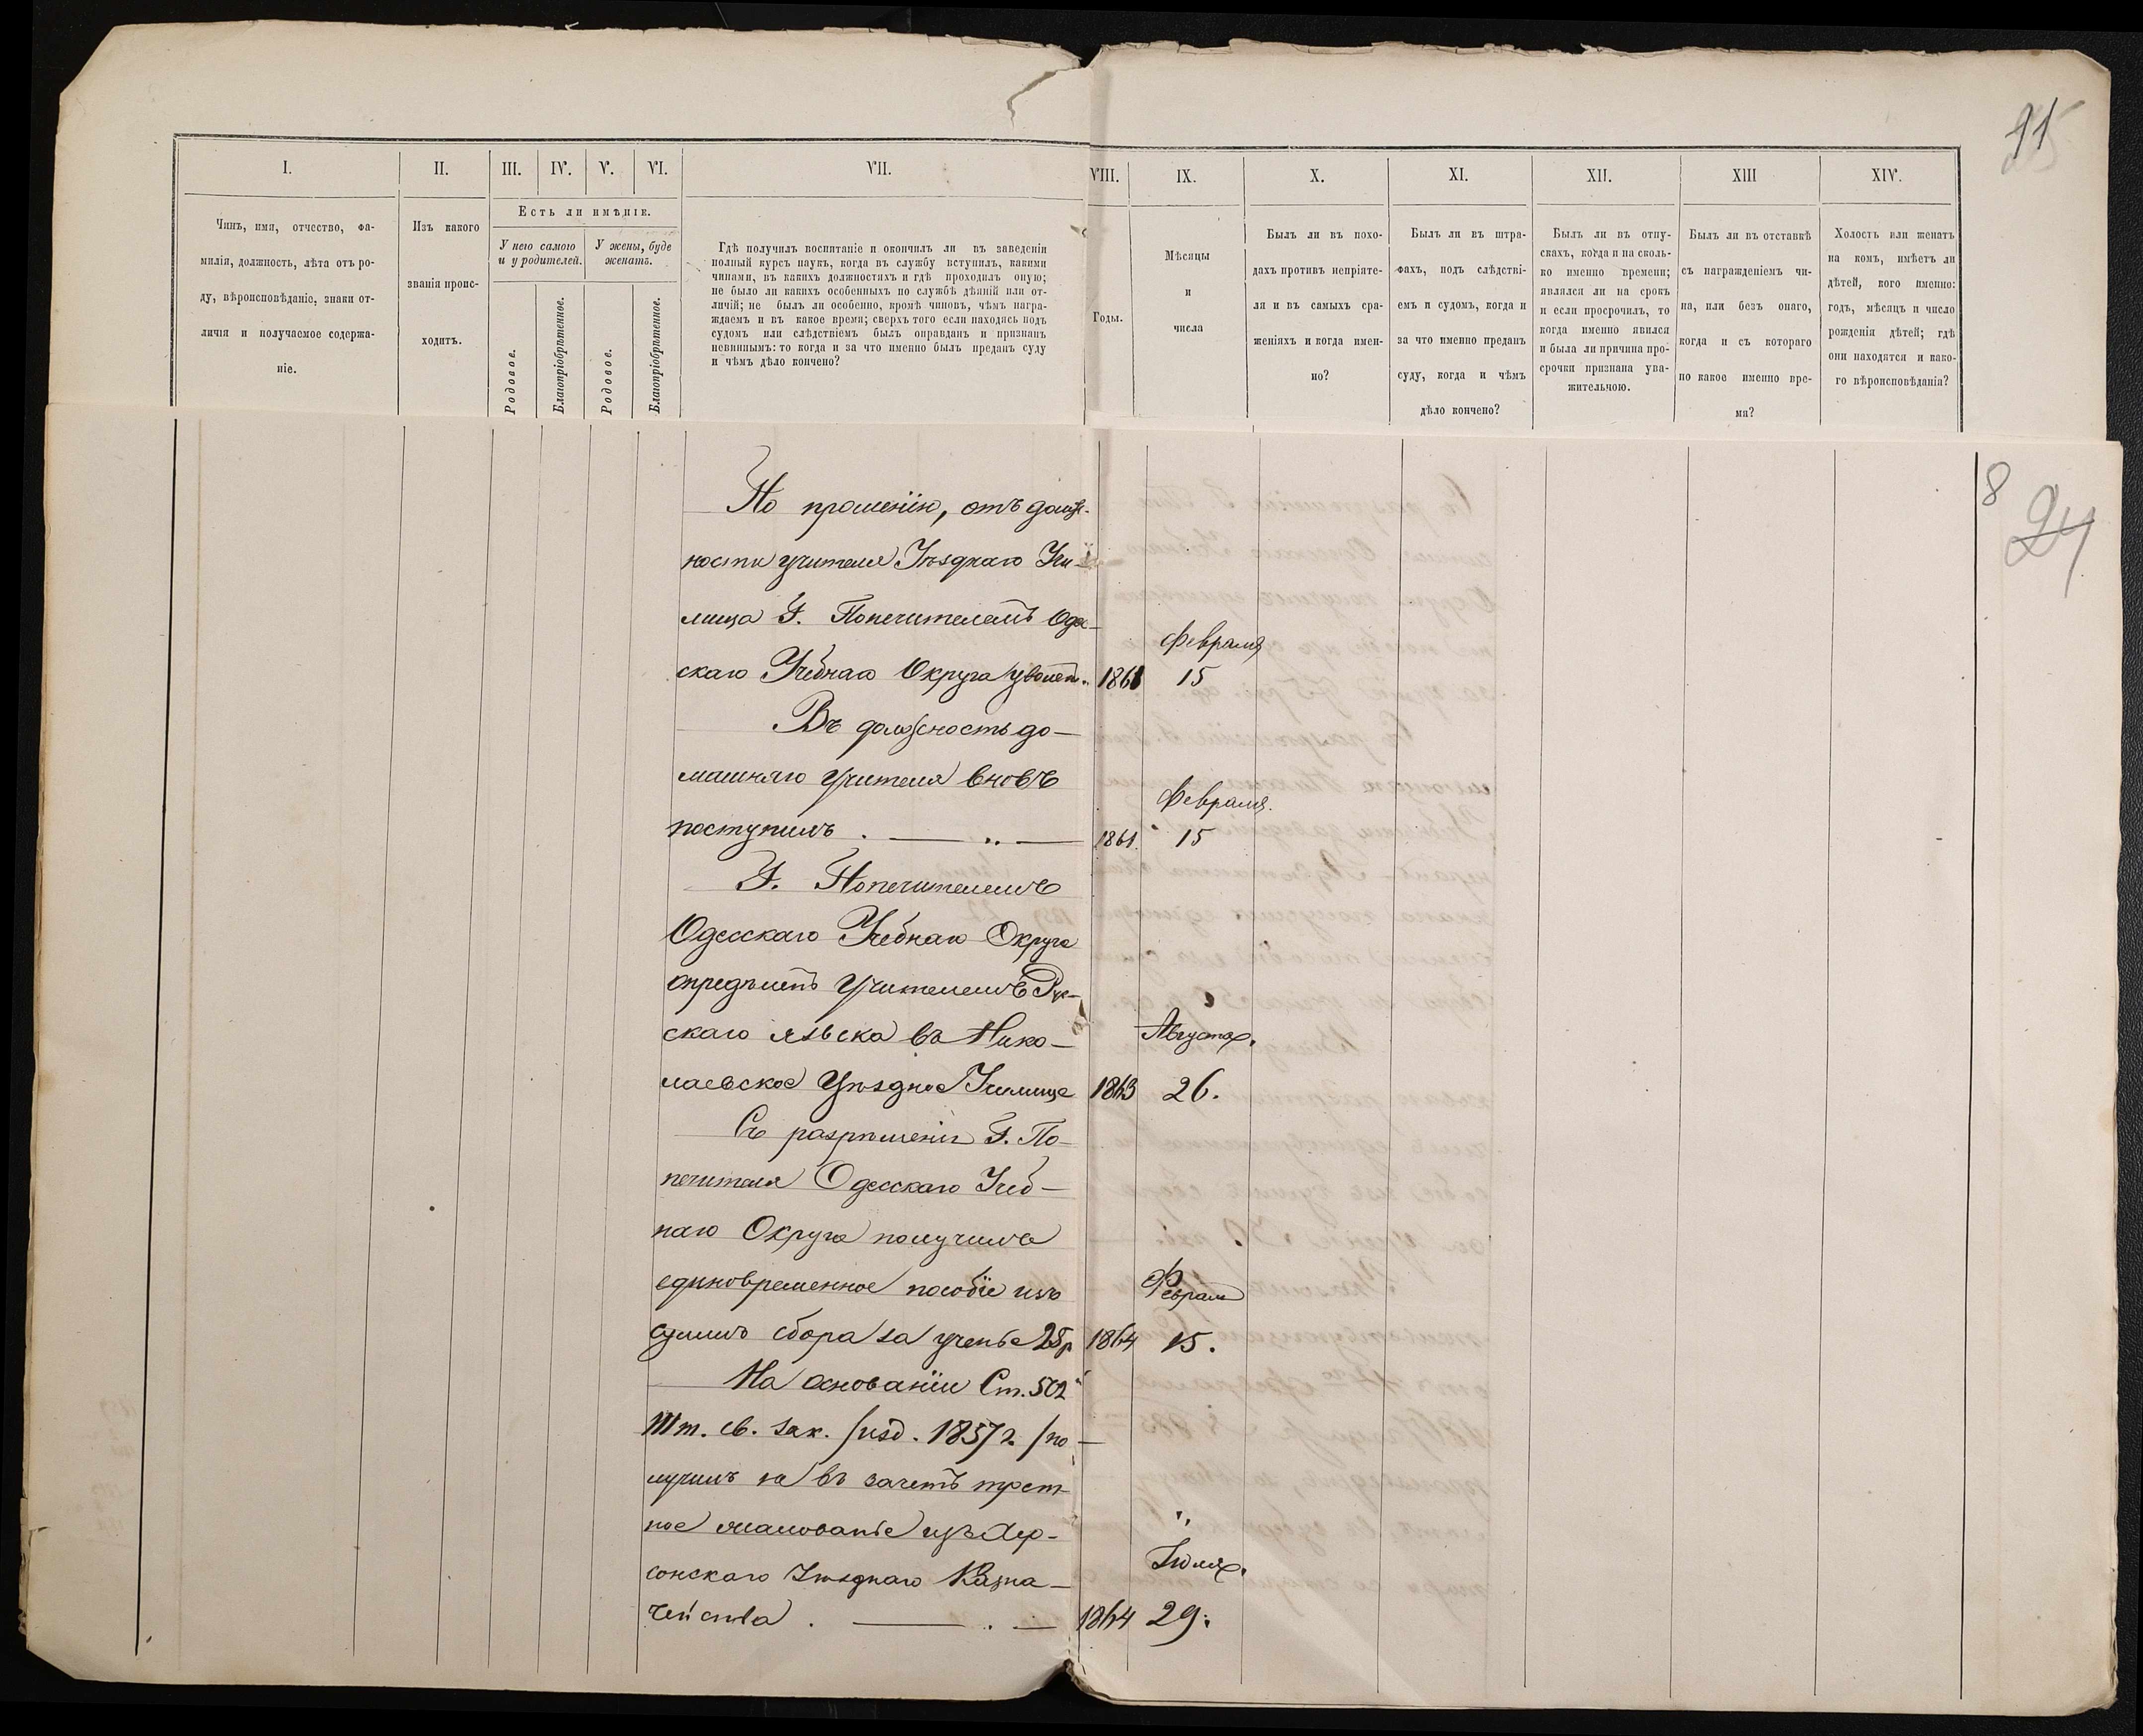 11
I.
II.
III.
IV.
V.
VI.
VII.
VIII.
IX.
X.
XI.
XII.
XIII
XIV.
Чинъ, имя, отчество, фа-
милія, должность, лѣта отъ ро-
ду, вѣроисповѣданіе, знаки от-
личія и получаемое содержа-
ніе.
Изъ какого
званія проис-
ходитъ.
Есть ли имѣніе.
У него самого
и у родителей.
У жены, буде
женатъ.
Родовое.
Благопріобрѣтенное.
Родовое.
Благопріобрѣтенное.
Гдѣ получилъ воспитаніе и окончилъ ли въ заведеніи
полный курсъ наукъ, когда въ службу вступилъ, какими
чинами, въ какихъ должностяхъ и гдѣ проходилъ оную;
не было ли какихъ особенныхъ по службѣ дѣяній или от-
личій; не былъ ли особенно, кромѣ чиновъ, чѣмъ награ-
ждаемъ и въ какое время; сверхъ того если находясь подъ
судомъ или слѣдствіемъ былъ оправданъ и признанъ
невиннымъ: то когда и за что именно былъ преданъ суду
и чѣмъ дѣло кончено?
Годы.
Мѣсяцы
и
числа
Былъ ли въ похо-
дахъ противъ непріяте-
ля и въ самыхъ сра-
женіяхъ и когда имен-
но?
Былъ ли въ штра-
фахъ, подъ слѣдстві-
емъ и судомъ, когда и
за что именно преданъ
суду, когда и чѣмъ
дѣло кончено?
Былъ ли въ отпу-
скахъ, когда и на сколь-
ко именно времени;
являлся ли на срокъ
и если просрочилъ, то
когда именно явился
и была ли причина про-
срочки признана ува-
жительною.
Былъ ли въ отставкѣ
съ награжденіемъ чи-
на, или безъ онаго,
когда и съ котораго
по какое именно вре-
мя?
Холостъ или женатъ
на комъ, имѣетъ ли
дѣтей, кого именно:
годъ, мѣсяцъ и число
рожденія дѣтей; гдѣ
они находятся и како-
го вѣроисповѣданія?
8
24
По прошенію, отъ долж-
ности учителя Уѣзднаго Учи-
лища Г. Попечителемъ Одес-
скаго Учебнаго Округа уволенъ. 1861 Февраля 15
Въ должность до-
машняго учителя вновь
поступилъ . — „ — 1861. Февраля. 15
Г. Попечителемъ
Одесскаго Учебнаго Округа
опредѣленъ Учителемъ Рус-
скаго языка въ Нико-
лаевское Уѣздное Училище 1863 Августа. 26.
Съ разрѣшенія Г. По-
печителя Одесскаго Учеб-
наго Округа получилъ
единовременное пособіе изъ
суммъ сбора за ученье 25 р 1864 Февраля 15.
На основаніи Ст. 502
III т. св. зак. /изд. 1857 г. /по-
лучилъ не въ зачетъ трет-
ное жалованье изъ Хер-
сонскаго Уѣзднаго Казна-
чейства . — . — 1864 Іюля. 29.